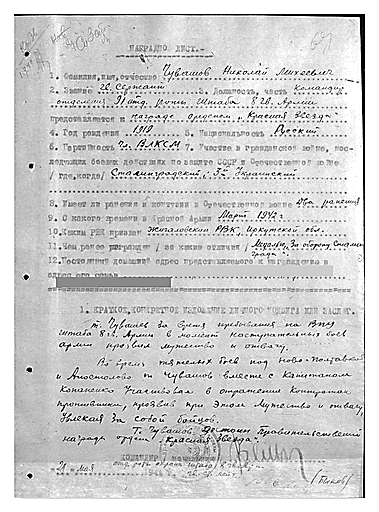 НАГРАДНОЙ ЛИСТ.-
1. Фамилия, имя, отчество Чувашов Николай Михеевич
2. Звание Гв. Сержант 3. Должность, часть Командир
отделения отд. роты Штаба 8 гв. Армии
представляется к награде орденом "Красная Звезда"
4. Год рождения 1919 5. Национальность Русский
6. Партийность Чл. ВЛКСМ 7. Участие в гражданской войне, пос-
ледующих боевых действиях по защите СССР и Отечественной войне
/где, когда/ Сталинградский, 3й Украинский
8. Имеет ли ранения и контузии в Отечественной войне Два ранения
9. С какого времени в Красной Армии Март 1942 г
10. Каким РВК призван Жигаловским РВК, Иркутской обл.
11. Чем ранее награжден /за какие отличия/ Медаль "За оборону Сталин
града".
12. Постоянный домашний адрес представляемого к награждению и
адрес его семьи
1. КРАТКОЕ, КОНКРЕТНОЕ ИЗЛОЖЕНИЕ ЛИЧНОГО ПОДВИГА ИЛИ ЗАСЛУГ.
т. Чувашев за время пребывания на
штаба 8 гв. Армии в момент наступательных боев
армии проявил мужество и отвагу.
Во время тяжелых боев под Ново-Полтавкой
и Апостолово т. Чувашев вместе с Капитаном
Копаненко участвовал в отражении контратак
противника, проявив при этом мужество и отвагу,
увлекая за собой бойцов.
Т. Чувашев достоин Правительственной
награды "Красная Звезда".
КОМАНДИР
отд. роты охраны штаба 8 гв.
"21" мая
(Быков)